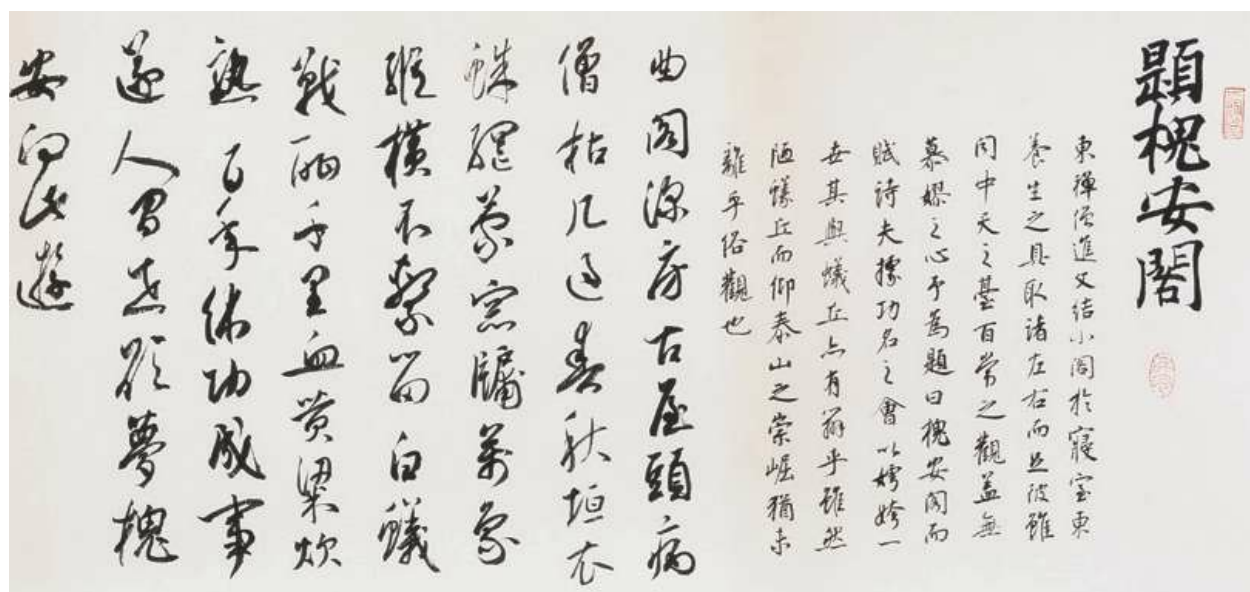 題槐安閣
東禪僧進文結小閣於寢室東
養生之具取諸左右而足彼雖
閎中天之臺百常之觀蓋無
慕嫪之心予為題曰槐安閣而
賦詩夫據功名之會以嫮姱一
世其與蟻丘亦有辨乎雖然
陋蟻丘而仰泰山之崇崛猶未
離乎俗觀也
曲閣深房古屋頭病
僧枯几過春秋垣衣
蛛蒙窓牖萬象
縱橫不繫留白蟻
戰酣千里血黃粱炊
熟百年休功成事
遂人間世欲夢槐
安向此遊